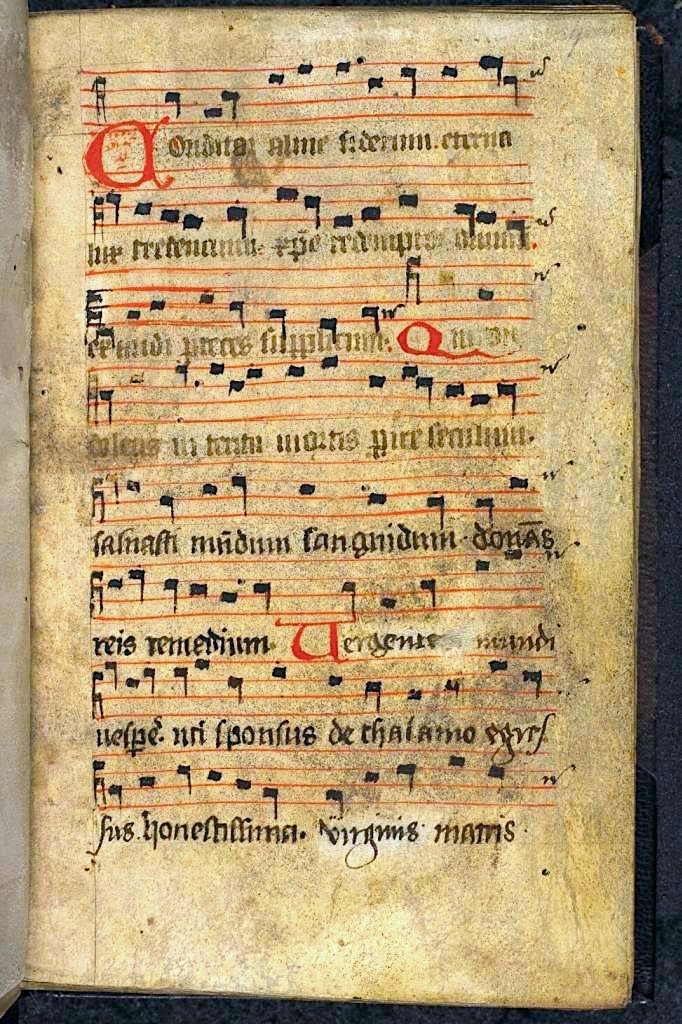 Conditor alme siderum. eterna
lux credencium. xp̄e redemptor omnium.
exaudi preces supplicum. Qui con
dolens in teritu mortis pire seculum.
saluasti mūdum languidum. donās
reis remedium. Uergente mundi
uespe᷑. uti sponsus de thalamo egres
sus honestissima. virginis matris.